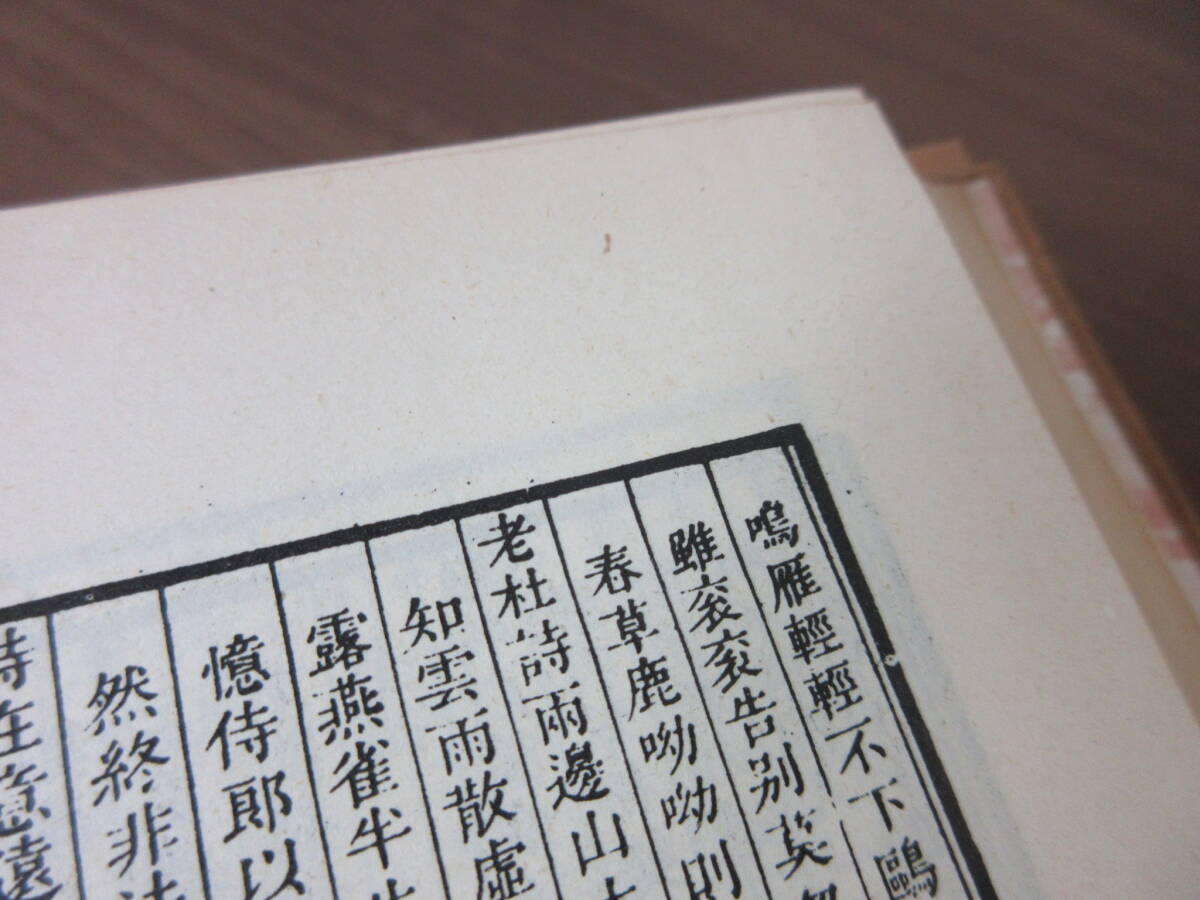 鳴雁輕輕不下鷗
雖衮衮告别莫
春草鹿呦呦則
老杜詩雨邊山
知雲雨散虛
露燕雀半生
憶侍郎以
然終非
詩在意遠